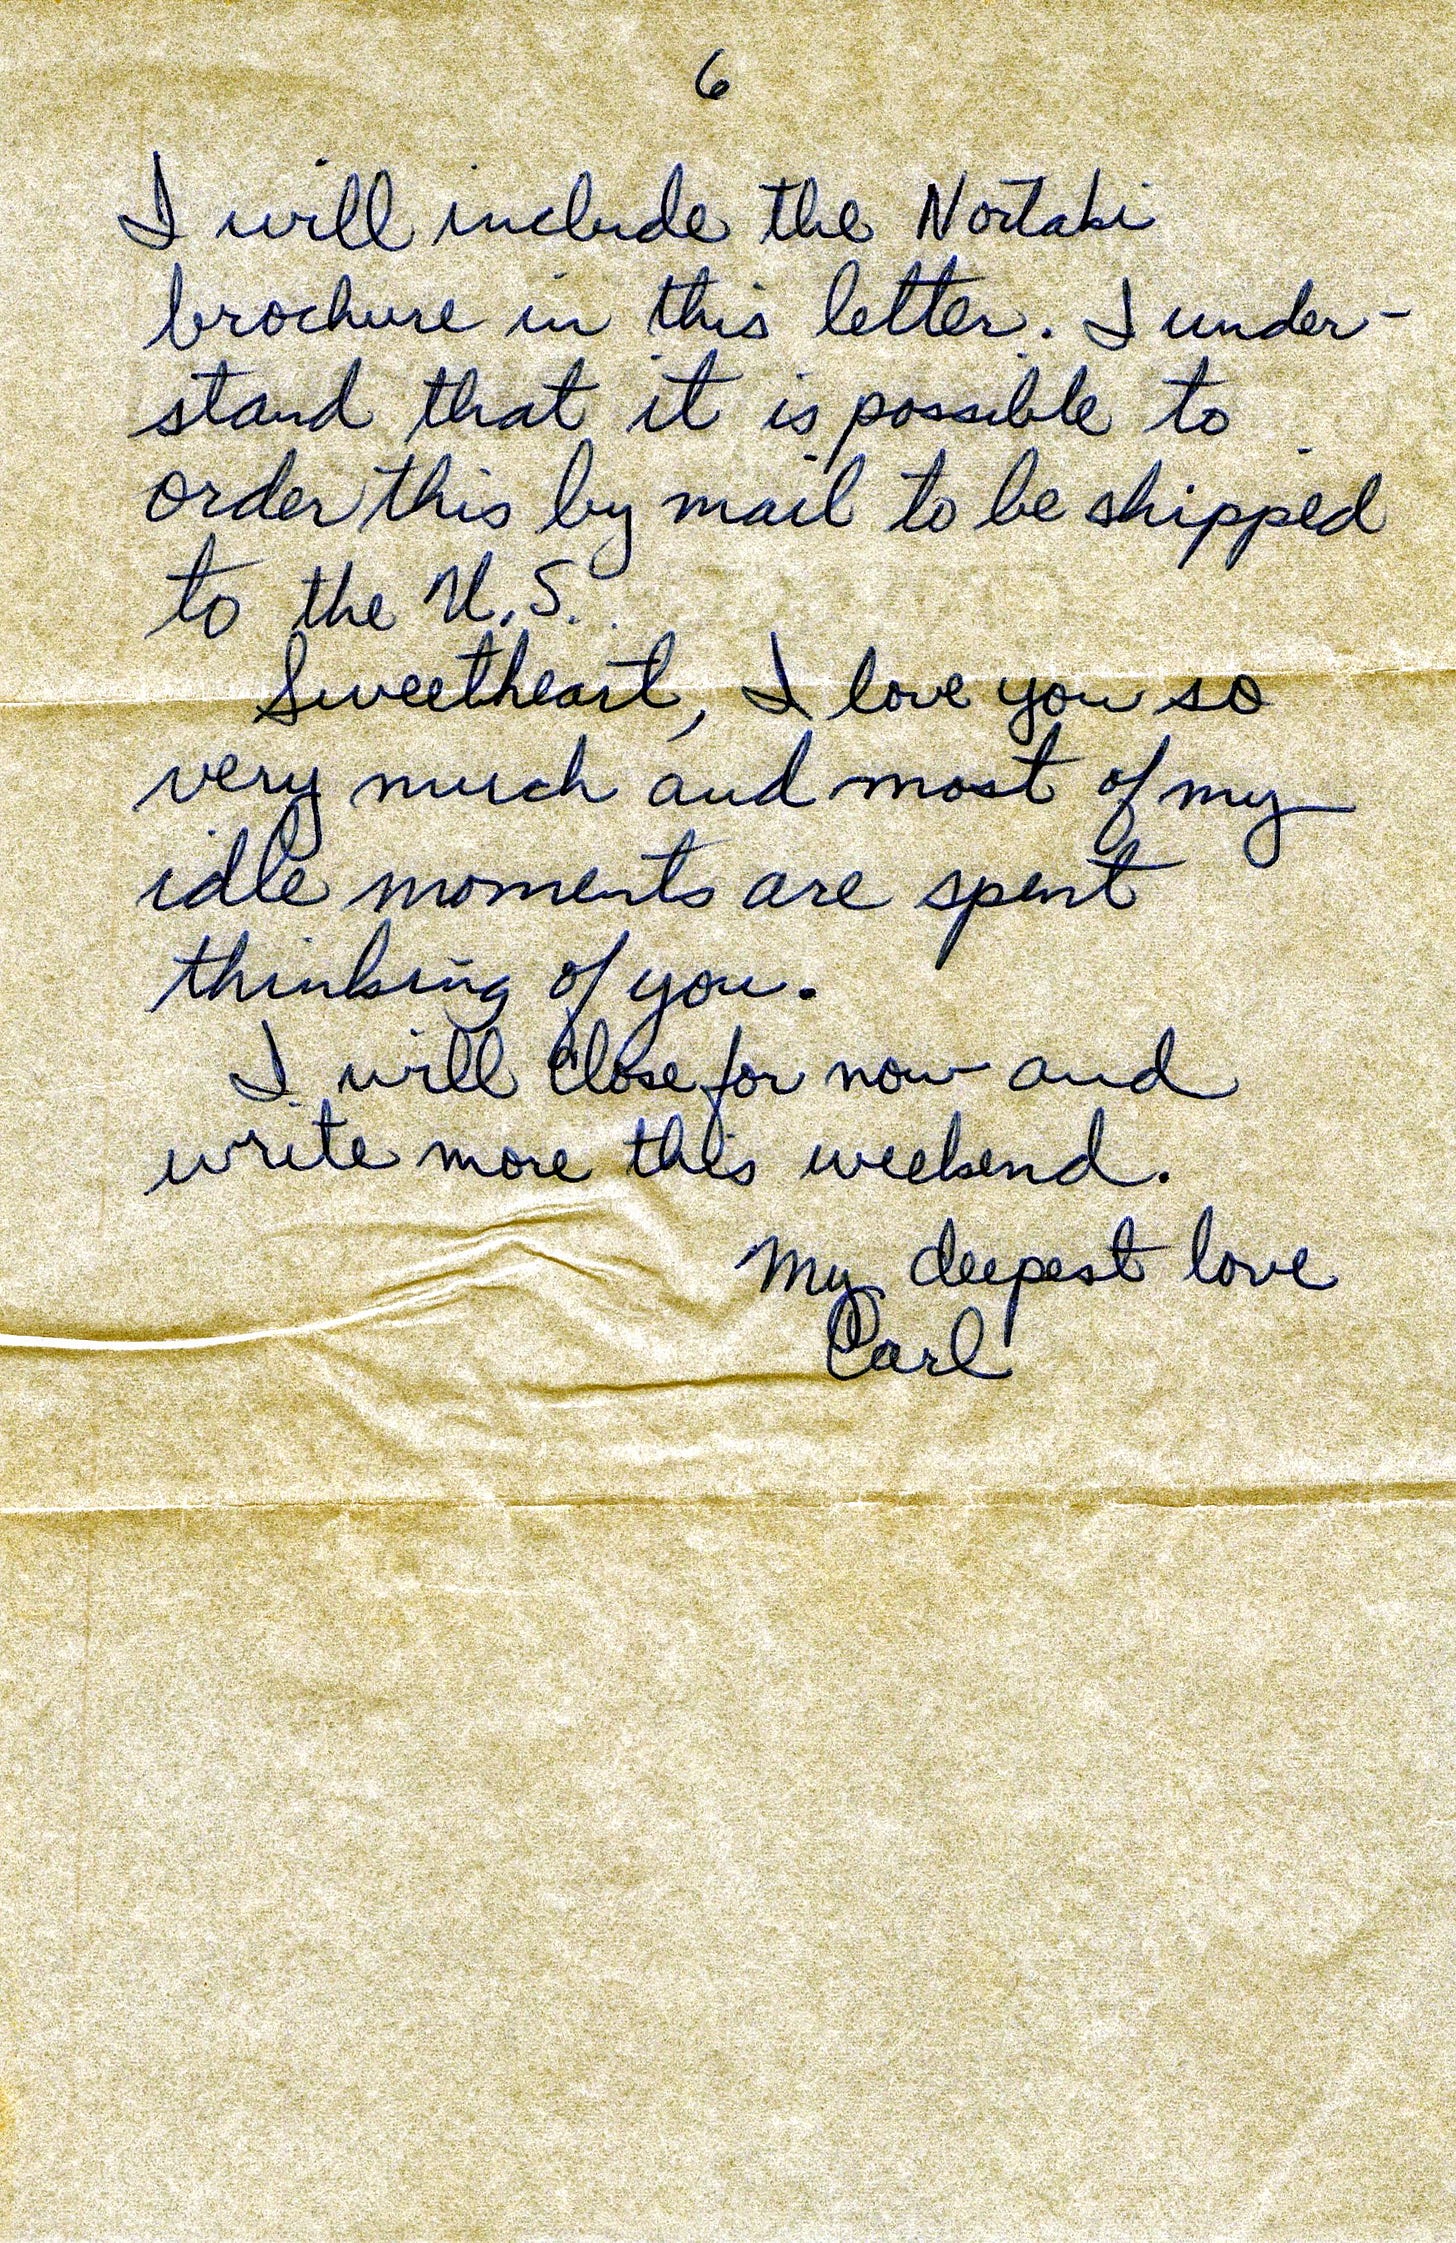 6
I will include the Nortaki
brochure in this letter. I under-
stand that it is possible to
order this by mail to be shipped
to the U.S.
Sweetheart, I love you so
very much and most of my
idle moments are spent
thinking of you.
I will close for now and
write more this weekend.
My deepest love
Carl